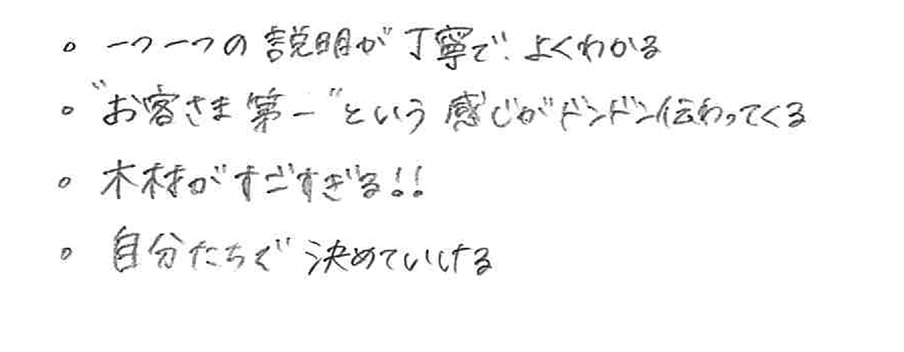 。一つ一つの説明が丁寧で、よくわかる
。"お客さま第一"という感じがドンドン伝わってくる
。木材がすごすぎる!!
。自分たちで決めていける